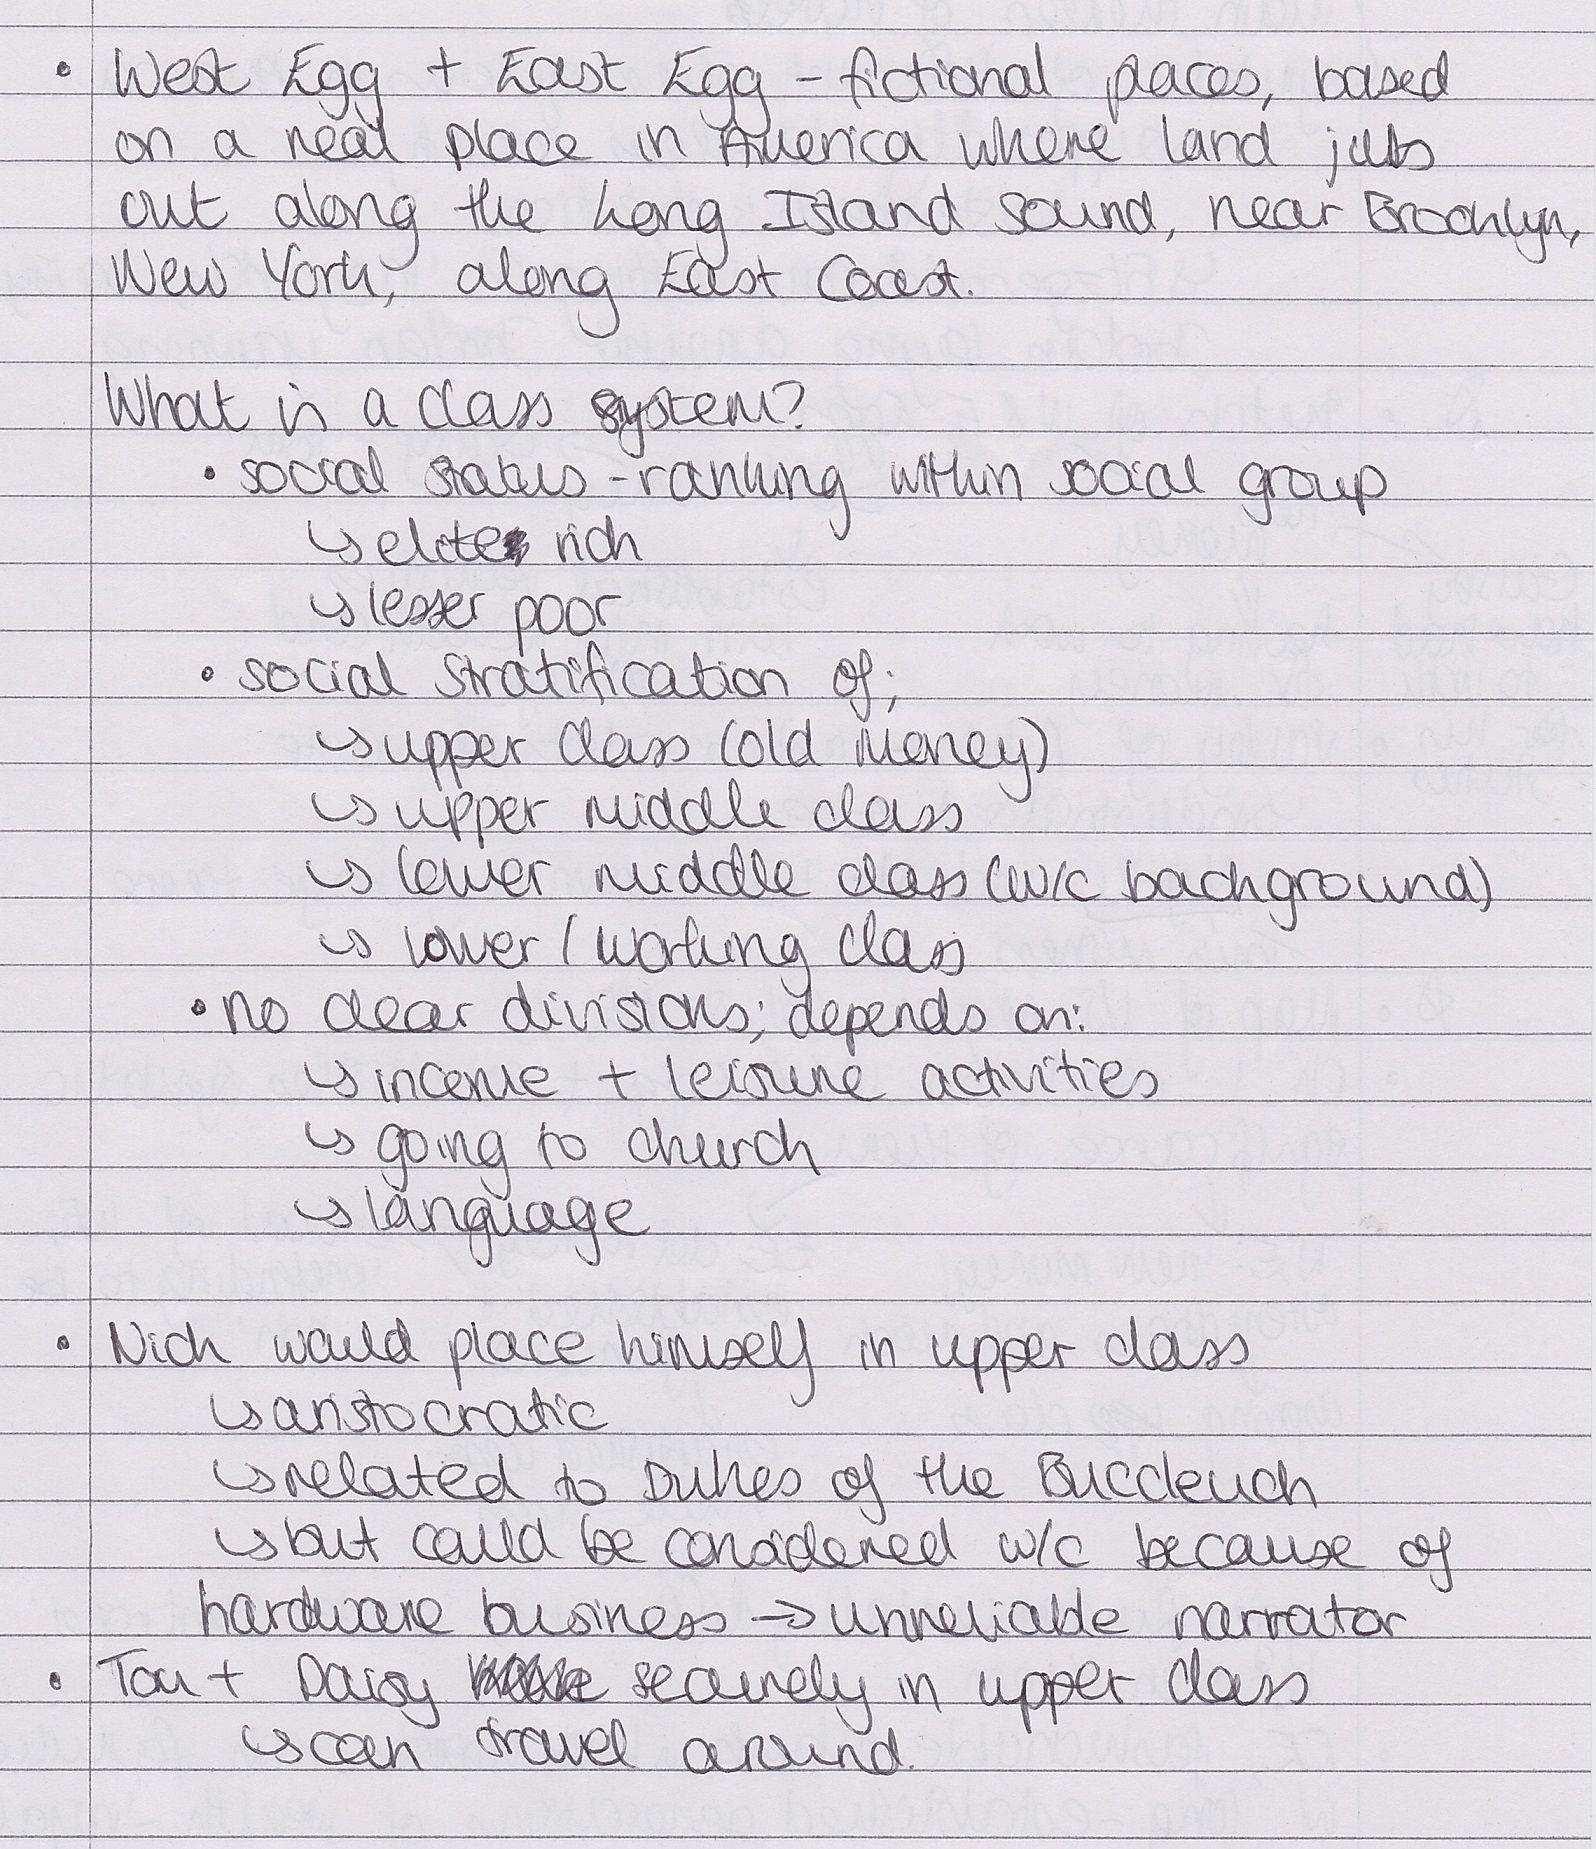 • West Egg + East Egg - fictional places, based
on a real place in America where land juts
out along the Long Island Sound, near Brooklyn,
New York, along East Coast.
What is a class system?
• social status - ranking within social group
↳ elite rich
↳ lesser poor
• social stratification of;
↳ upper class (old money)
↳ upper middle class
↳ lower middle class (w/c background)
↳ lower / working class
• no clear divisions; depends on:
↳ income + leisure activities
↳ going to church
↳ language
• Nick would place himself in upper class
↳ aristocratic
↳ related to Dukes of the Buccleuch
↳ but could be considered w/c because of
hardware business → unreliable narrator
• Tom + Daisy securely in upper class
↳ can travel around.